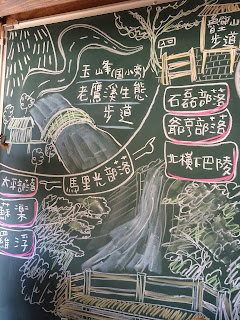 步道
玉峰(國小旁)
老鷹溪生態
步道
石磊部落
爺亨部落
北橫巴陵
馬里光部落
太平部落
蘇樂
羅浮